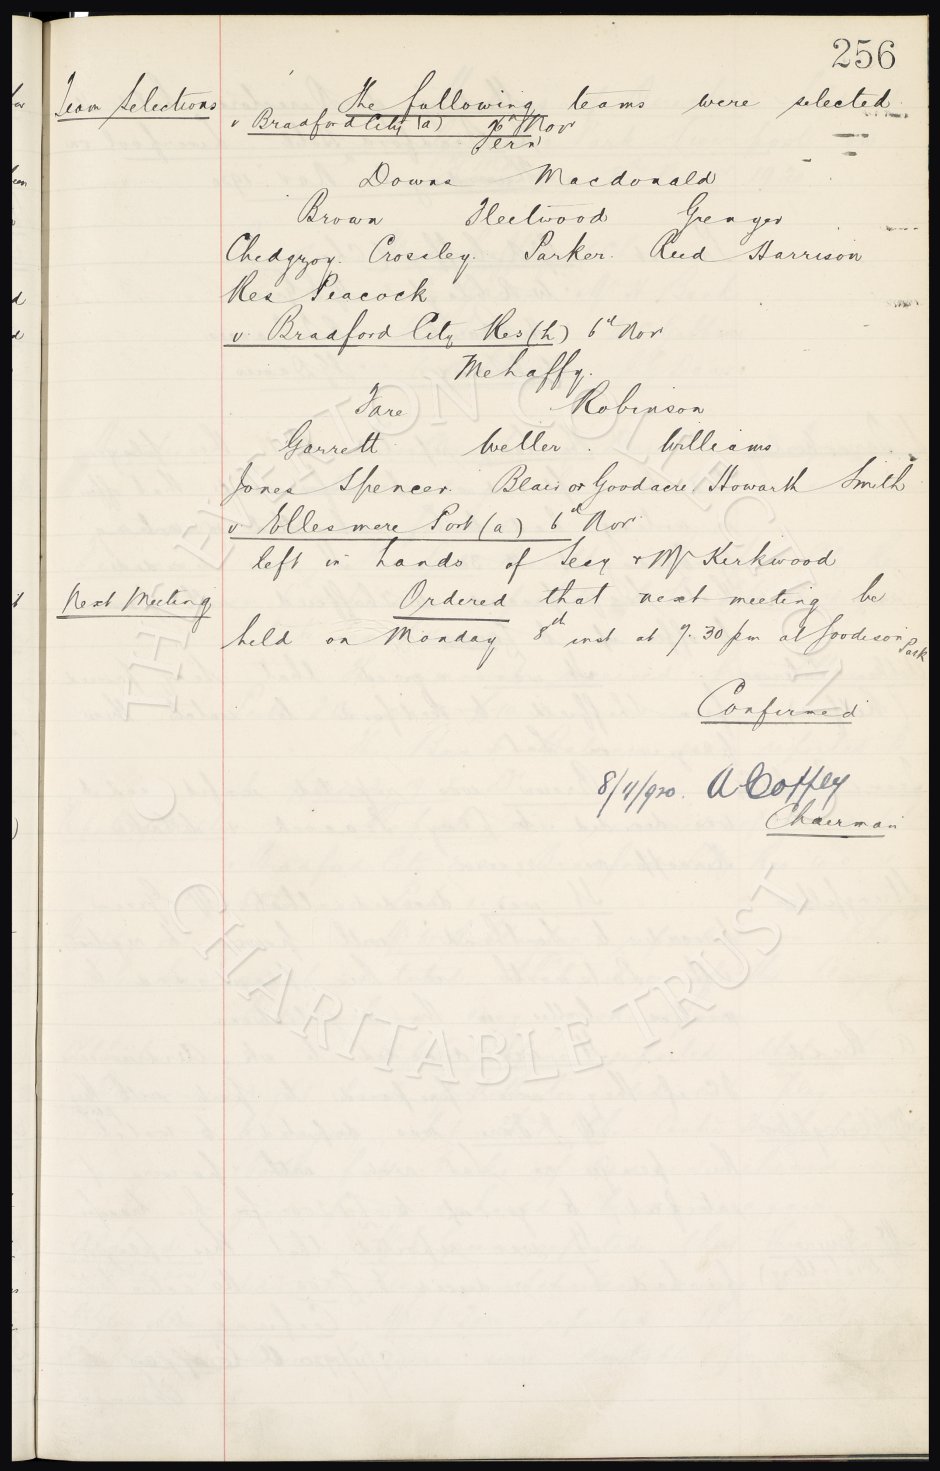 256
Team Selections The following teams were selected
v Bradford City (a) 6th Nov
Fern
Downs Macdonald
Brown Fleetwood Grenyer
Chedgzoy. Crossley. Parker. Reid Harrison
Res Peacock
v. Bradford City Res (h) 6th Nov
Mehaffy.
Fare Robinson
Garrett Weller. Williams
Jones Spencer. Blair or Goodacre. Howarth Smith
v. Ellesmere Port (a) 6th Nov
left in hands of Secy & Mr Kirkwood
Next Meeting Ordered that next meeting be
held on Monday 8th inst at 7.30 pm at Goodison Park
Confirmed
8/11/920. A Coffey
Chairman
THE EVERTON COLLECTION
CHARITABLE TRUST